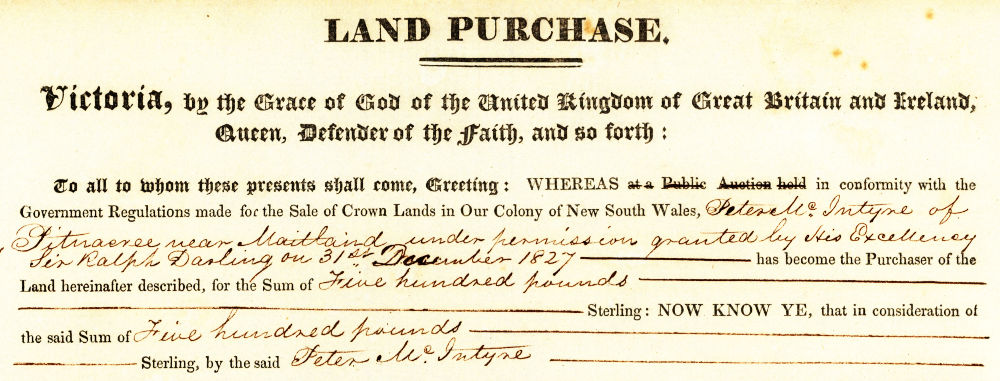 LAND PURCHASE.
Victoria, by the Grace of God of the United Kingdom of Great Britain and Ireland,
Queen, Defender of the Faith, and so forth:
To all to whom these presents shall come, Greeting: WHEREAS at a Public Auction held in conformity with the
Government Regulations made for the Sale of Crown Lands in Our Colony of New South Wales, Peter Mc. Intyre of
Pitnacree near Maitland under permission granted by His Excellency
Sir Ralph Darling on 31st December 1827 has become the Purchaser of the
Land hereinafter described, for the Sum of Five hundred pounds
Sterling: NOW KNOW YE, that in consideration of
the said Sum of Five hundred pounds
Sterling, by the said Peter Mc. Intyre